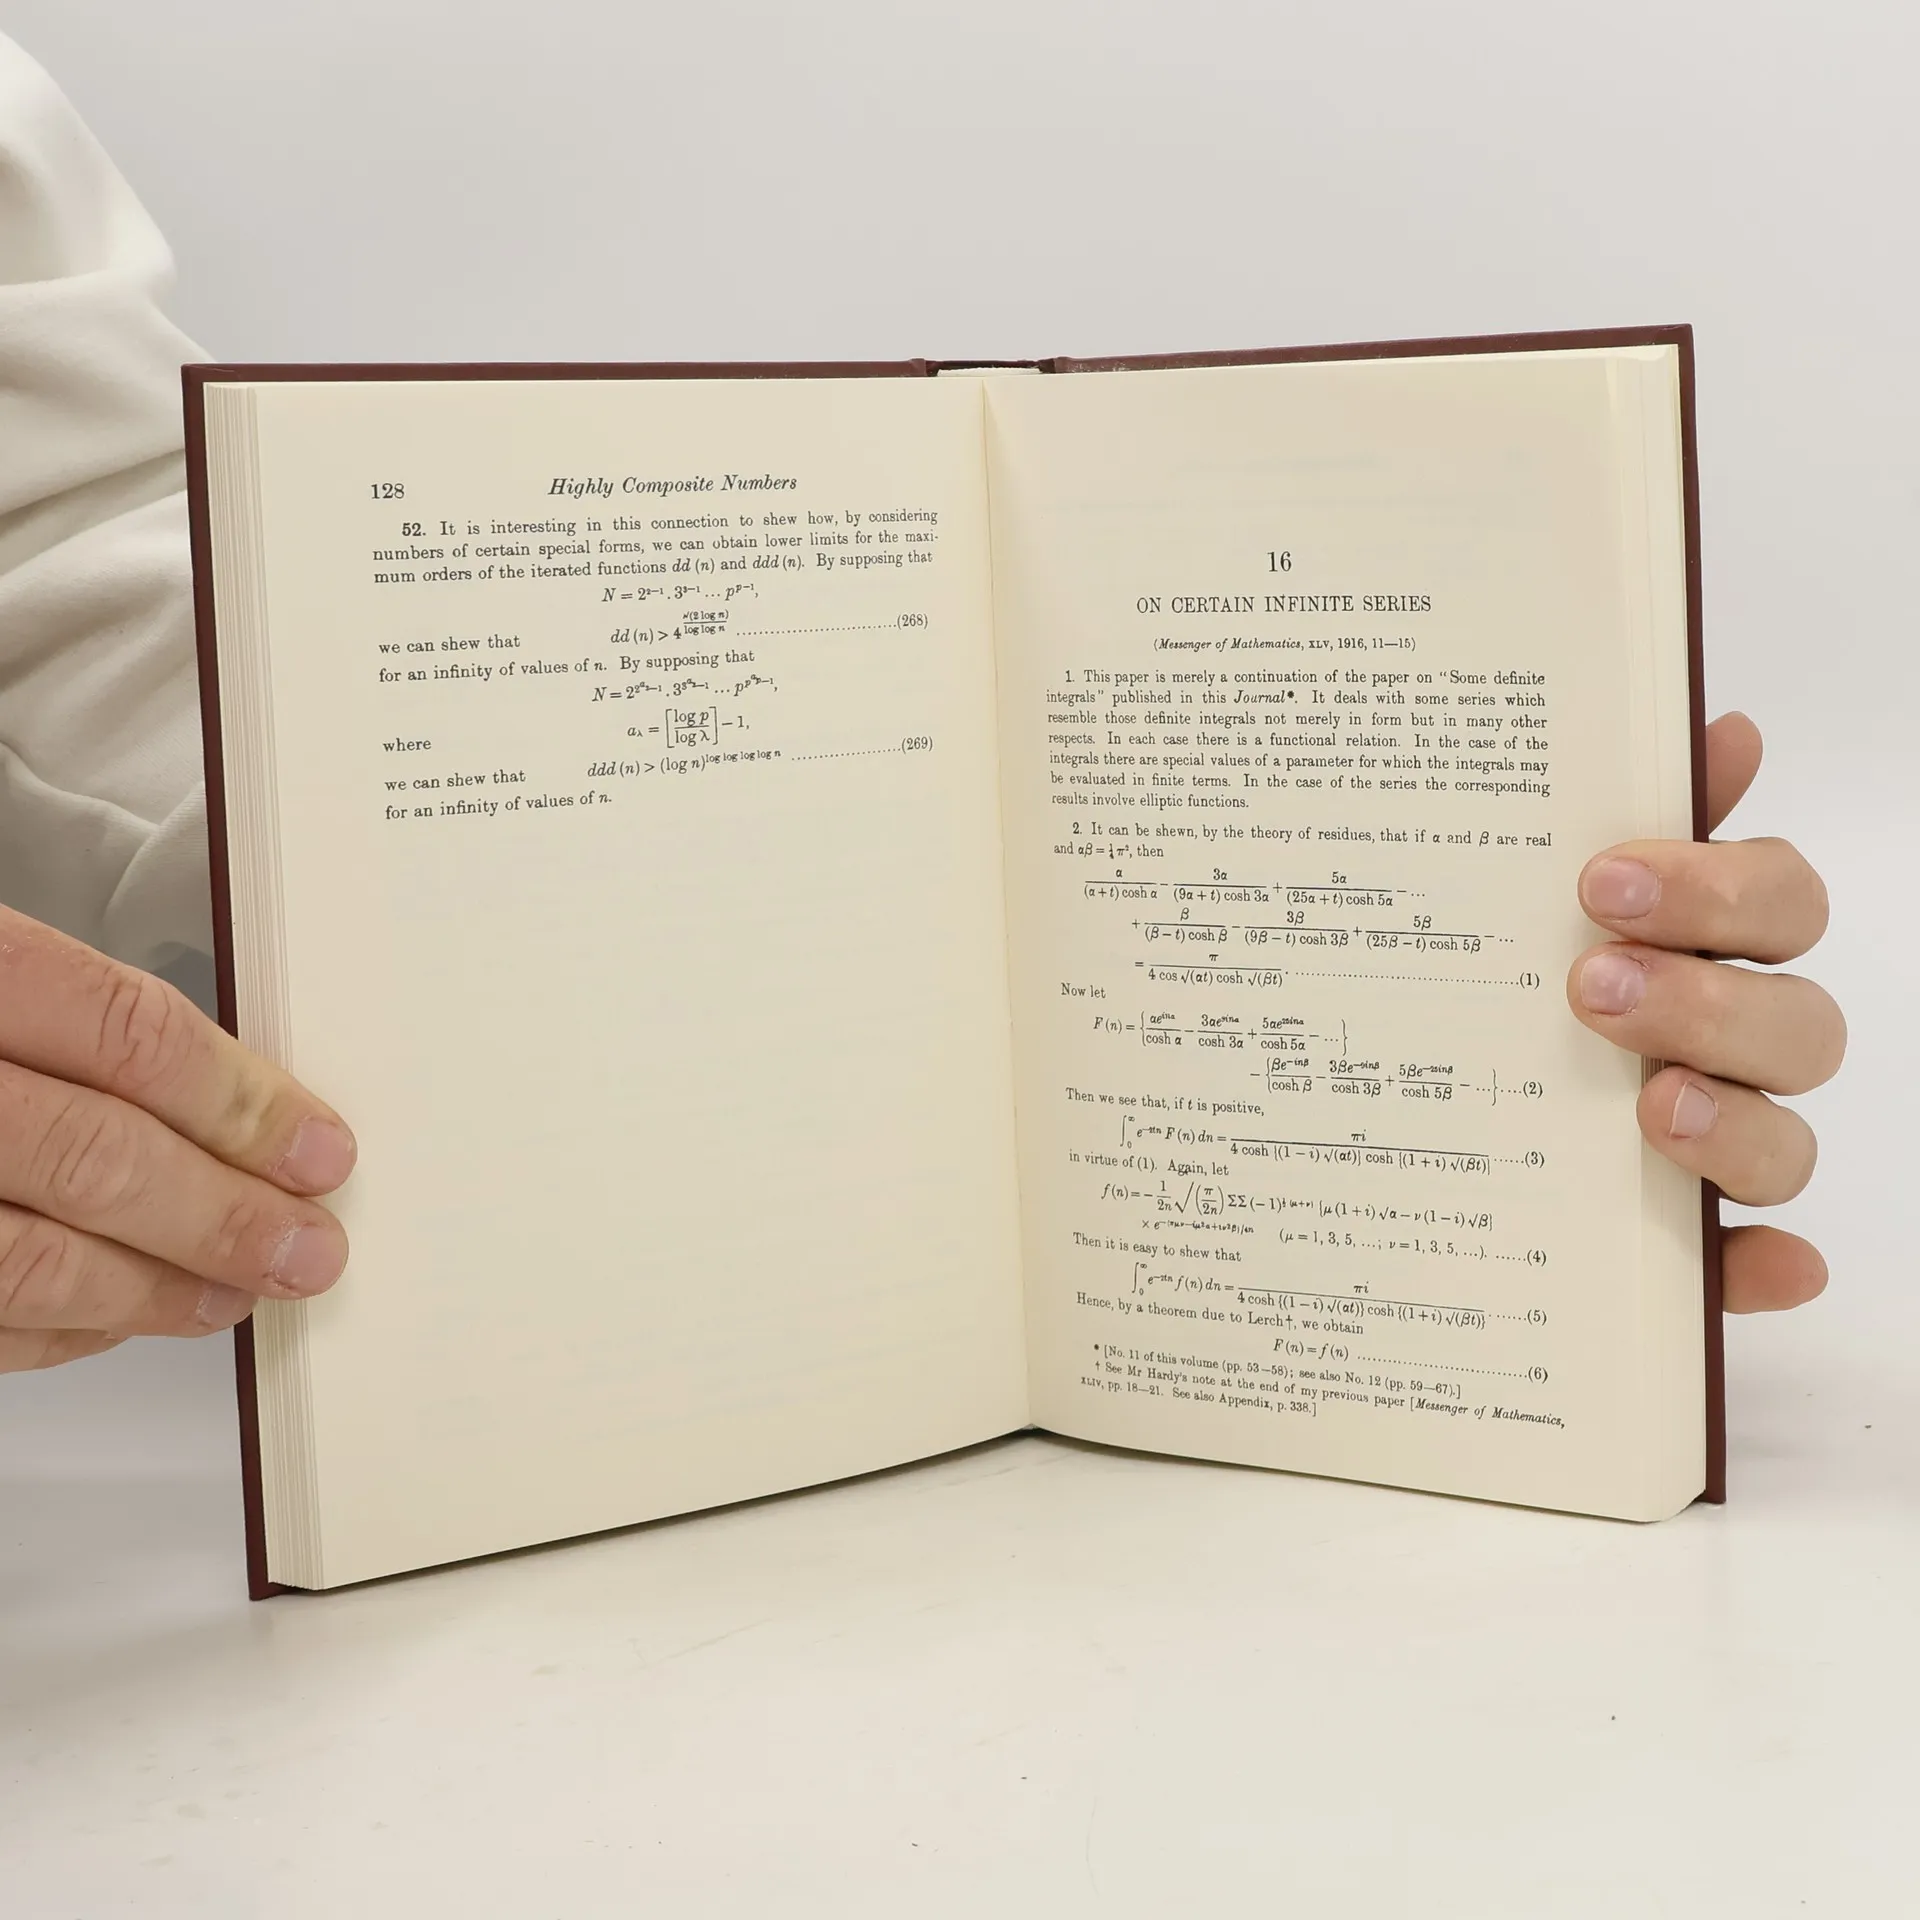 128 Highly Composite Numbers
52. It is interesting in this connection to shew how, by considering
numbers of certain special forms, we can obtain lower limits for the maxi-
mum orders of the iterated functions dd (n) and ddd (n). By supposing that
N = 2^{2−1} . 3^{3−1} ... p^{p−1},
we can shew that dd (n) > 4^{√(2 log n)/log log n} ..............................(268)
for an infinity of values of n. By supposing that
N = 2^{2^{a_2}−1} . 3^{3^{a_3}−1} ... p^{p^{a_p}−1},
where a_λ = [log p/log λ] − 1,
we can shew that ddd (n) > (log n)^{log log log log n} ....................(269)
for an infinity of values of n.
16
ON CERTAIN INFINITE SERIES
(Messenger of Mathematics, XLV, 1916, 11—15)
1. This paper is merely a continuation of the paper on “Some definite
integrals” published in this Journal*. It deals with some series which
resemble those definite integrals not merely in form but in many other
respects. In each case there is a functional relation. In the case of the
integrals there are special values of a parameter for which the integrals may
be evaluated in finite terms. In the case of the series the corresponding
results involve elliptic functions.
2. It can be shewn, by the theory of residues, that if α and β are real
and αβ = ¼π², then
α/((α + t) cosh α) − 3α/((9α + t) cosh 3α) + 5α/((25α + t) cosh 5α) − ...
+ β/((β − t) cosh β) − 3β/((9β − t) cosh 3β) + 5β/((25β − t) cosh 5β) − ...
= π/(4 cos √(αt) cosh √(βt)) . ..............................(1)
Now let
F (n) = {αe^{inα}/cosh α − 3αe^{9inα}/cosh 3α + 5αe^{25inα}/cosh 5α − ...}
− {βe^{−inβ}/cosh β − 3βe^{−9inβ}/cosh 3β + 5βe^{−25inβ}/cosh 5β − ...}. ...(2)
Then we see that, if t is positive,
∫_0^∞ e^{−2tn} F (n) dn = πi/(4 cosh {(1 − i) √(αt)} cosh {(1 + i) √(βt)}) ......(3)
in virtue of (1). Again, let
f (n) = − 1/2n √(π/2n) ΣΣ (− 1)^{½(μ+ν)} {μ (1 + i) √α − ν (1 − i) √β}
× e^{−(πμν−iμ²α+iν²β)/4n} (μ = 1, 3, 5, ...; ν = 1, 3, 5, ...). ......(4)
Then it is easy to shew that
∫_0^∞ e^{−2tn} f (n) dn = πi/(4 cosh {(1 − i) √(αt)} cosh {(1 + i) √(βt)}) ......(5)
Hence, by a theorem due to Lerch†, we obtain
F (n) = f (n) ..............................(6)
* [No. 11 of this volume (pp. 53—58); see also No. 12 (pp. 59—67).]
† See Mr Hardy's note at the end of my previous paper [Messenger of Mathematics,
XLIV, pp. 18—21. See also Appendix, p. 338.]